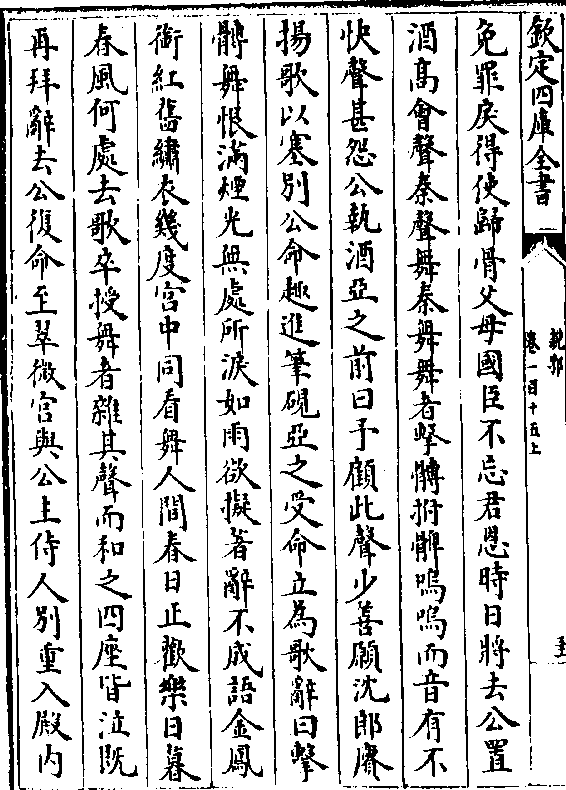 欽定四庫全書
說郛
卷一百十五上
免罪戾得使歸骨父母國臣不忘君恩時日將去公置
酒高會聲秦聲舞秦舞舞者擊髆拊髀嗚嗚而音有不
快聲甚怨公執酒亞之前曰予顧此聲少善願沈郎賡
揚歌以塞別公命趣進筆硯亞之受命立為歌辭曰擊
髆舞恨滿煙光無處所淚如雨欲擬著辭不成語金鳳
銜紅舊繡衣幾度宮中同看舞人間春日正歡樂日暮
春風何處去歌卒授舞者雜其聲而和之四座皆泣既
再拜辭去公復命至翠微宮與公主侍人別重入殿内